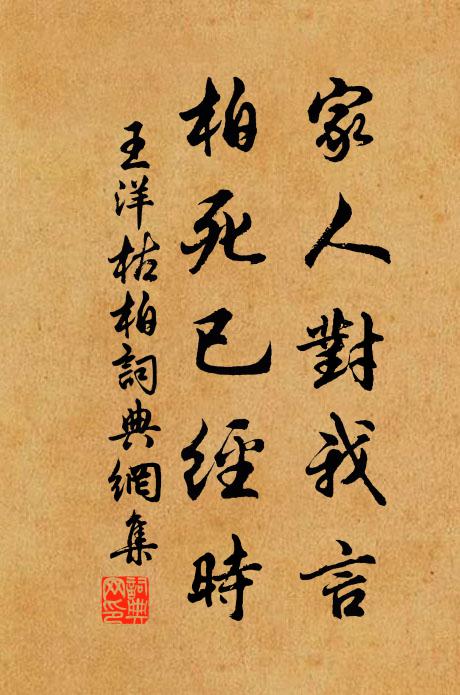 家人對我言
柏死已經時
王洋枯柏詞典網集
詞典网印